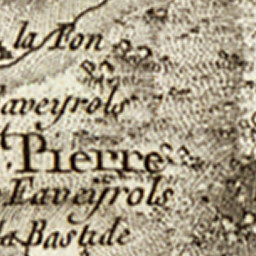 la Fon
aveyrols
t. Pierre
Eaveyrols
la Bastide